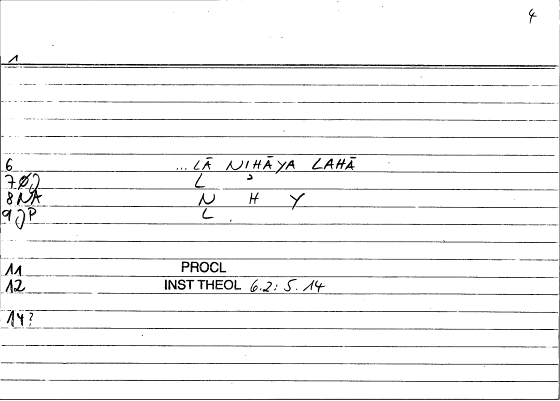 4
1
6 ... LĀ NIHĀYA LAHĀ
7 L ʾ
8 NA N H Y
9 P L
11 PROCL
12 INST THEOL 6.2: 5.14
14?